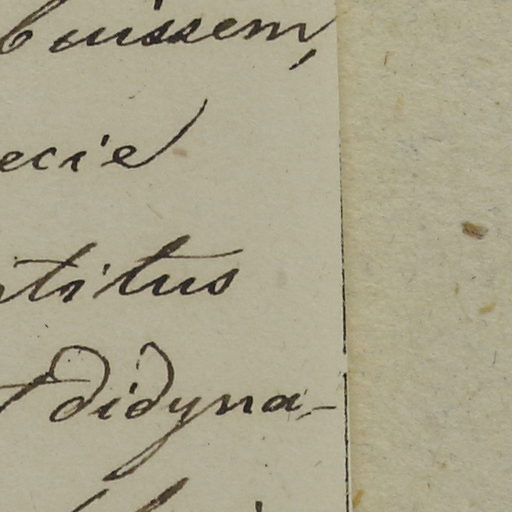 buissem,
ecie
titus
didyna-